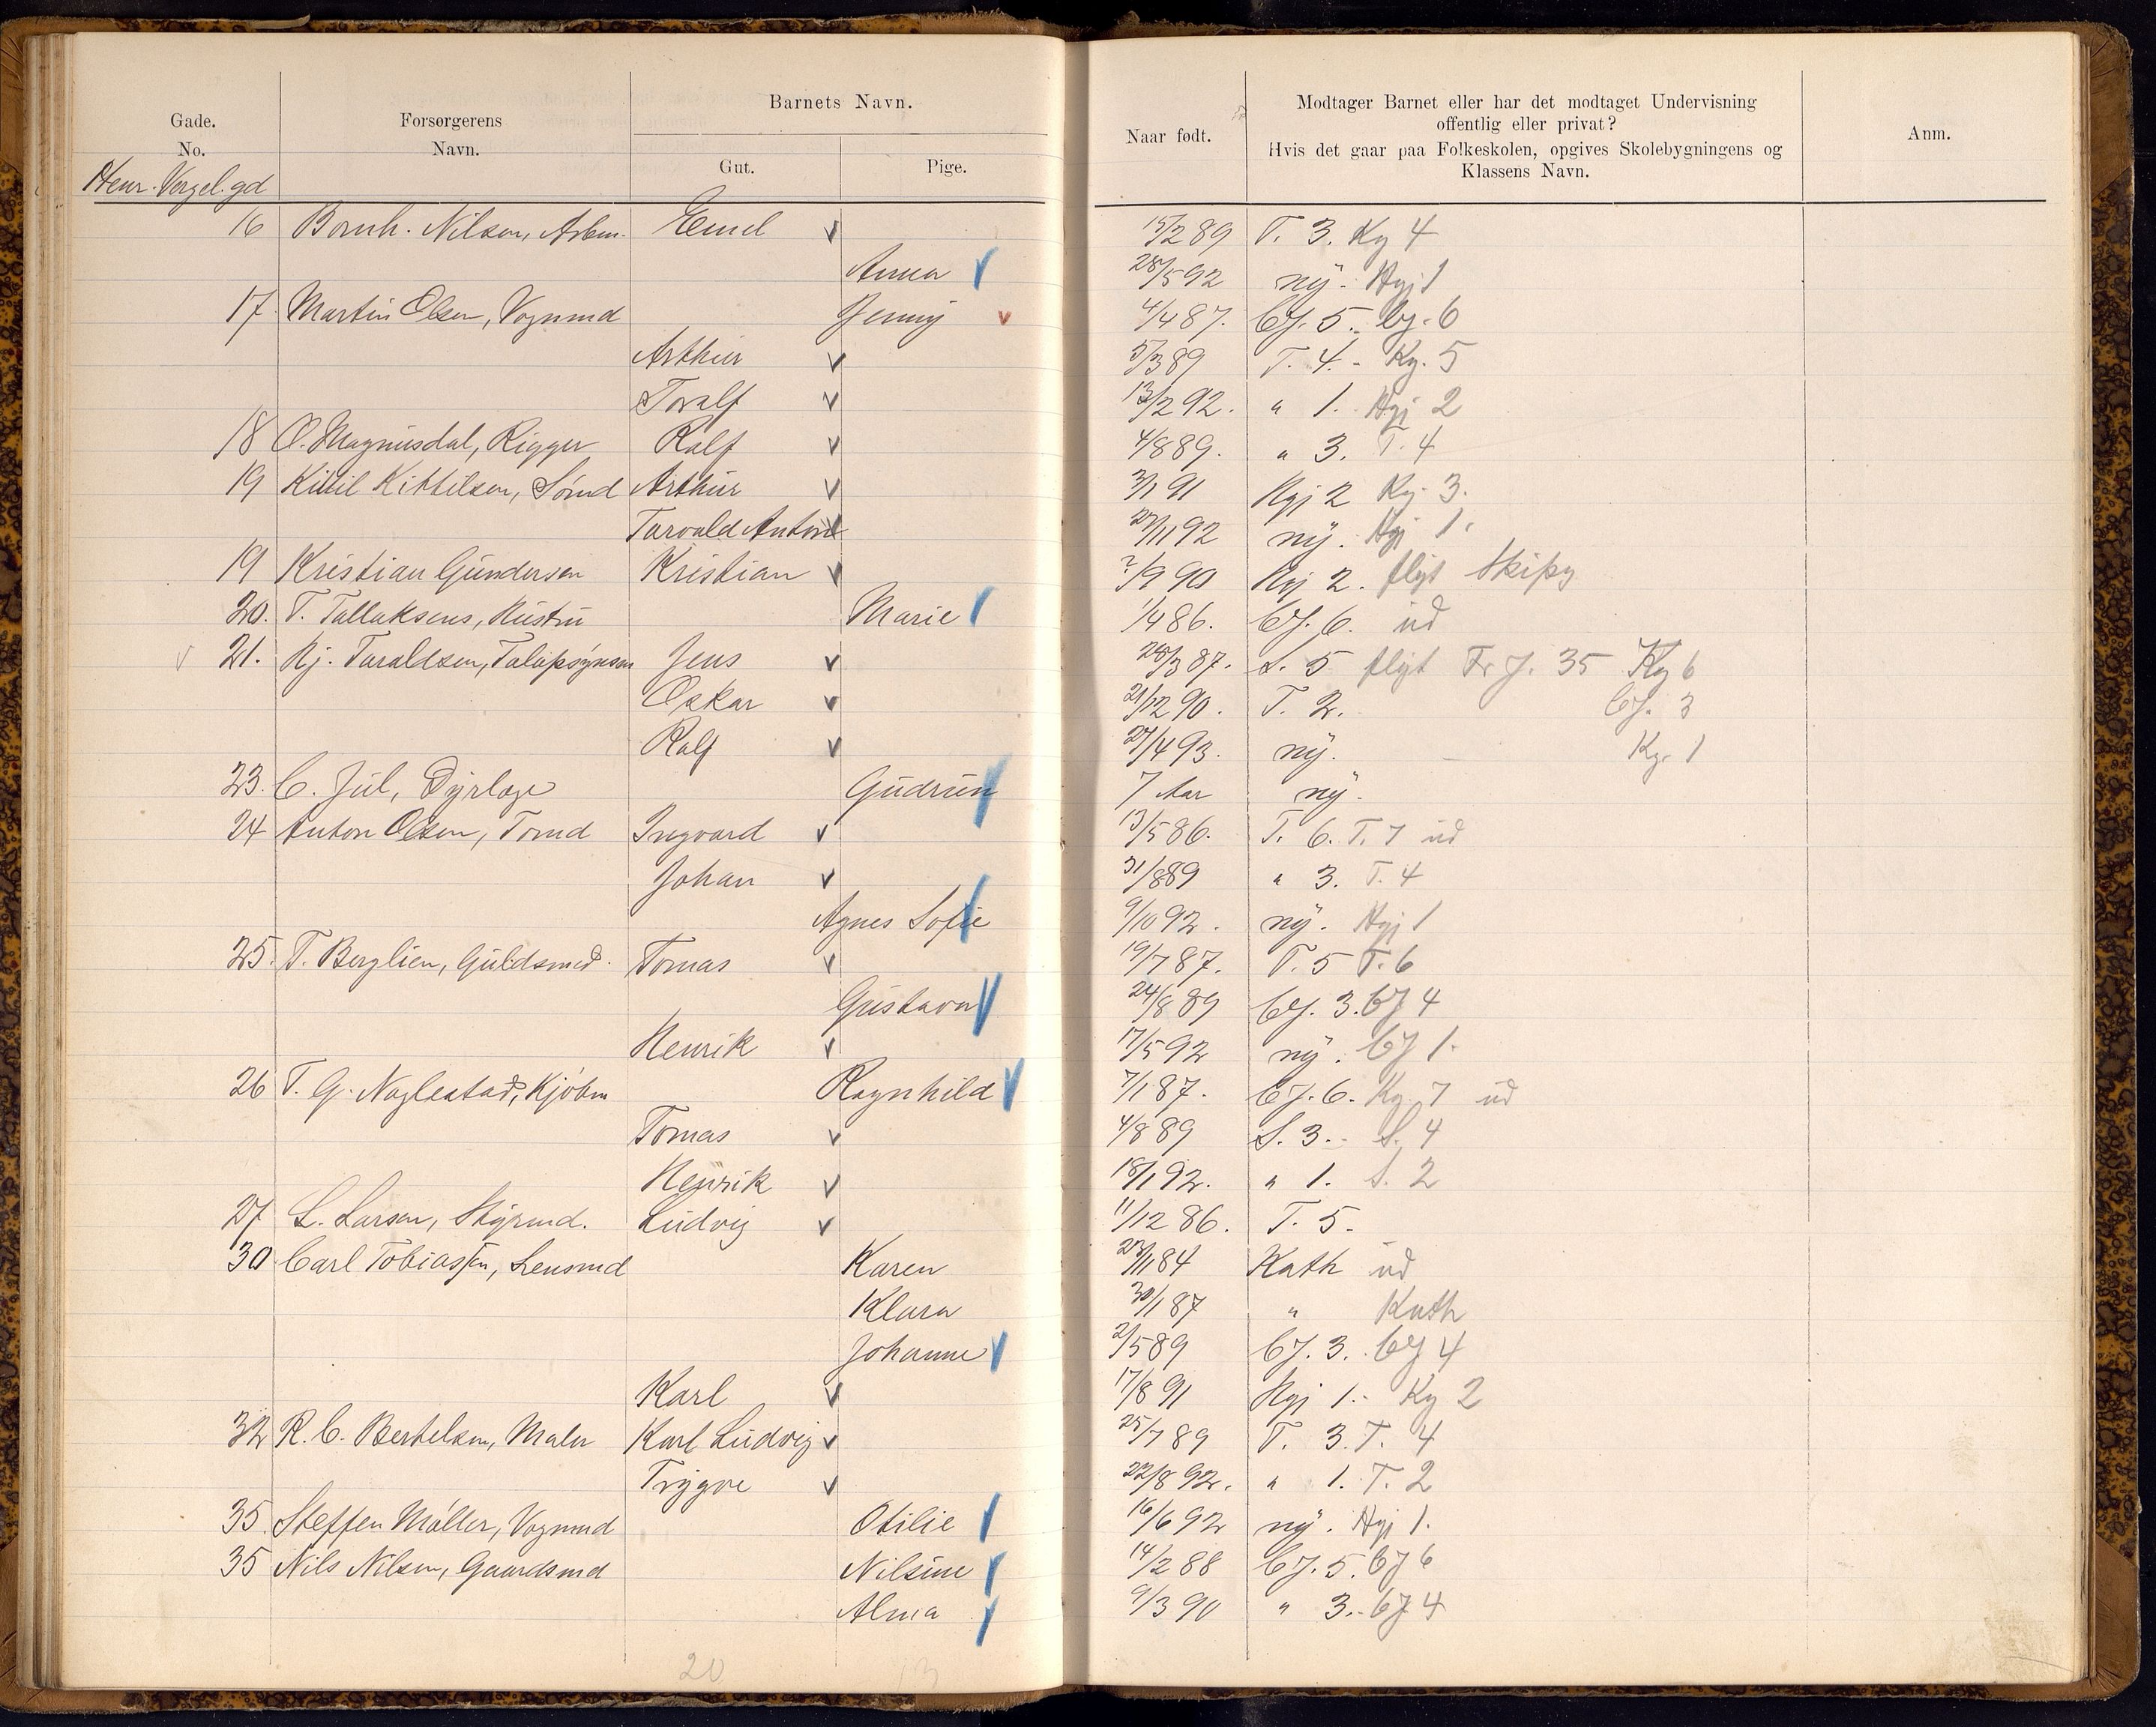 Gade.
No.
Forsørgerens
Navn.
Barnets Navn.
Gut.
Pige.
Naar født.
Modtager Barnet eller har det modtaget Undervisning
offentlig eller privat?
Hvis det gaar paa Folkeskolen, opgives Skolebygningens og
Klassens Navn.
Anm.
Henr. Vergel. gd
16 Bernh. Nilsen, Arbm. Emil 15/2 89 T. 3. Kg 4
Anna 28/5 92 ny. Hgj 1
17 Martin Olsen, Vognmd Jenny 4/4 87. CJ. 5. CJ. 6
Arthur 5/3 89 T. 4. - Kg. 5
Toralf 13/2 92. " 1. Hgj 2
18 O. Magnusdal, Rigger Ralf 4/8 89. " 3. T. 4
19 Kittil Kittilsen, Sømd Arthur 3/1 91 Hgj 2 Kg. 3.
Tarvald Anton 27/11 92 ny. Hgj 1.
19 Kristian Gundersen Kristian ?/9 90 Hgj 2. flyt Skipg
20. T. Tallaksens, Hustru Marie 1/4 86. CJ. 6. ud
21. Kj. Taraldsen, Jens 28/3 87. S. 5 flyt Fr J. 35 Kg 6
Oskar 21/12 90. T. 2. CJ. 3
Ralf 27/4 93. ny. Kg. 1
23. C. Jul, Dyrlæge Gudrun 7 Aar ny.
24 Anton Olsen, Tømd Ingvard 13/5 86. T. 6. T. 7 ud
Johan 31/8 89 " 3. T. 4
Agnes Sofie 9/10 92. ny. Hgj 1
25. T. Berglien, Guldsmed. Tomas 19/7 87. T. 5 T. 6
Gustava 24/8 89 CJ. 3. CJ 4
Henrik 17/5 92 ny. CJ 1.
26 T. G. Naglestad, Kjøbm Ragnhild 7/1 87. CJ. 6. Kg. 7 ud
Tomas 4/8 89 S. 3. - S. 4
Henrik 18/1 92. " 1. S. 2
27 L. Larsen, Styrmd. Ludvig 11/12 86. T. 5.
30 Carl Tobiassen, Lensmd Karen 23/11 84 Kath ud
Klara 30/1 87 " Kath
Johanne 2/5 89 CJ. 3. CJ 4
Karl 17/8 91 Hgj 1. - Kg 2
32 R. C. Bertelsen, Maler Karl Ludvig 25/7 89 T. 3. T. 4
Trygve 22/8 92. " 1. T. 2
35. Steffen Møller, Vognmd Otilie 16/6 92 ny. Hgj 1.
35 Nils Nilsen, Gaardsmd Nilsine 14/2 88 CJ. 5. CJ 6
Alma 9/3 90 " 3. - CJ 4
20 13